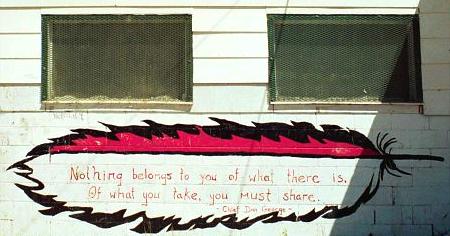 Nothing belongs to you of what there is.
Of what you take, you must share.
- Chief Dan George -